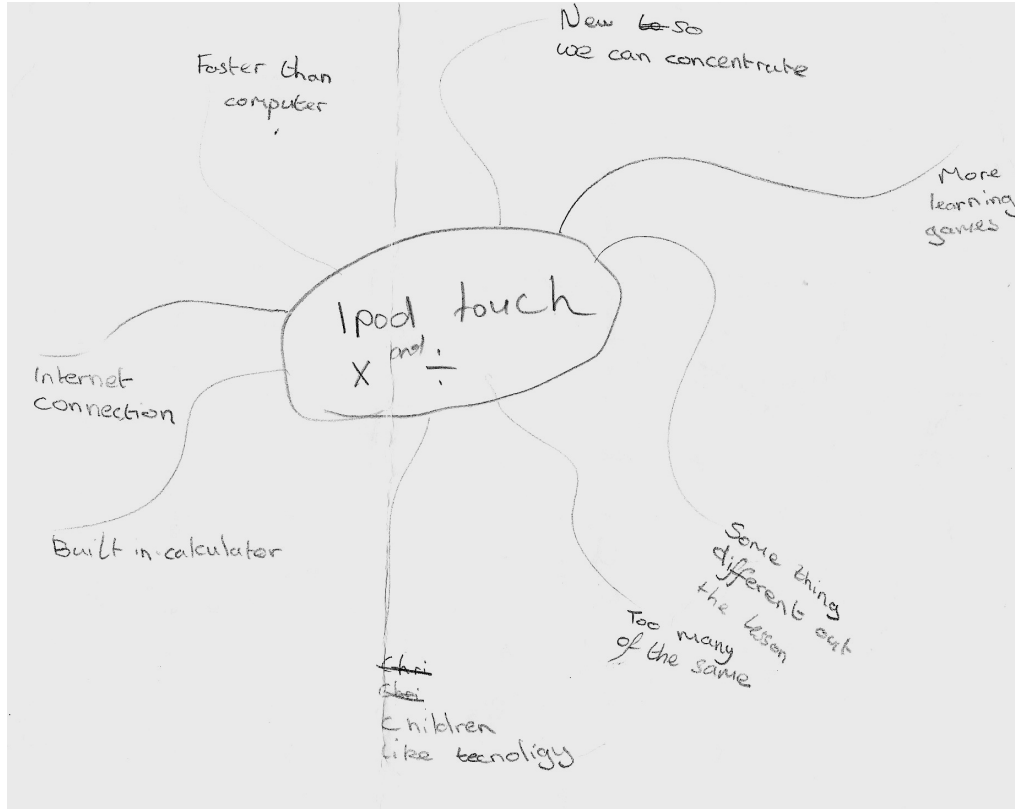 New so
we can concentrate
Faster than
computer
More
learning
games
Ipod touch
x and ÷
Internet
connection
Built in calculator
Some thing
different out
the lesson
Too many
of the same
Chri
Children
like tecnoligy